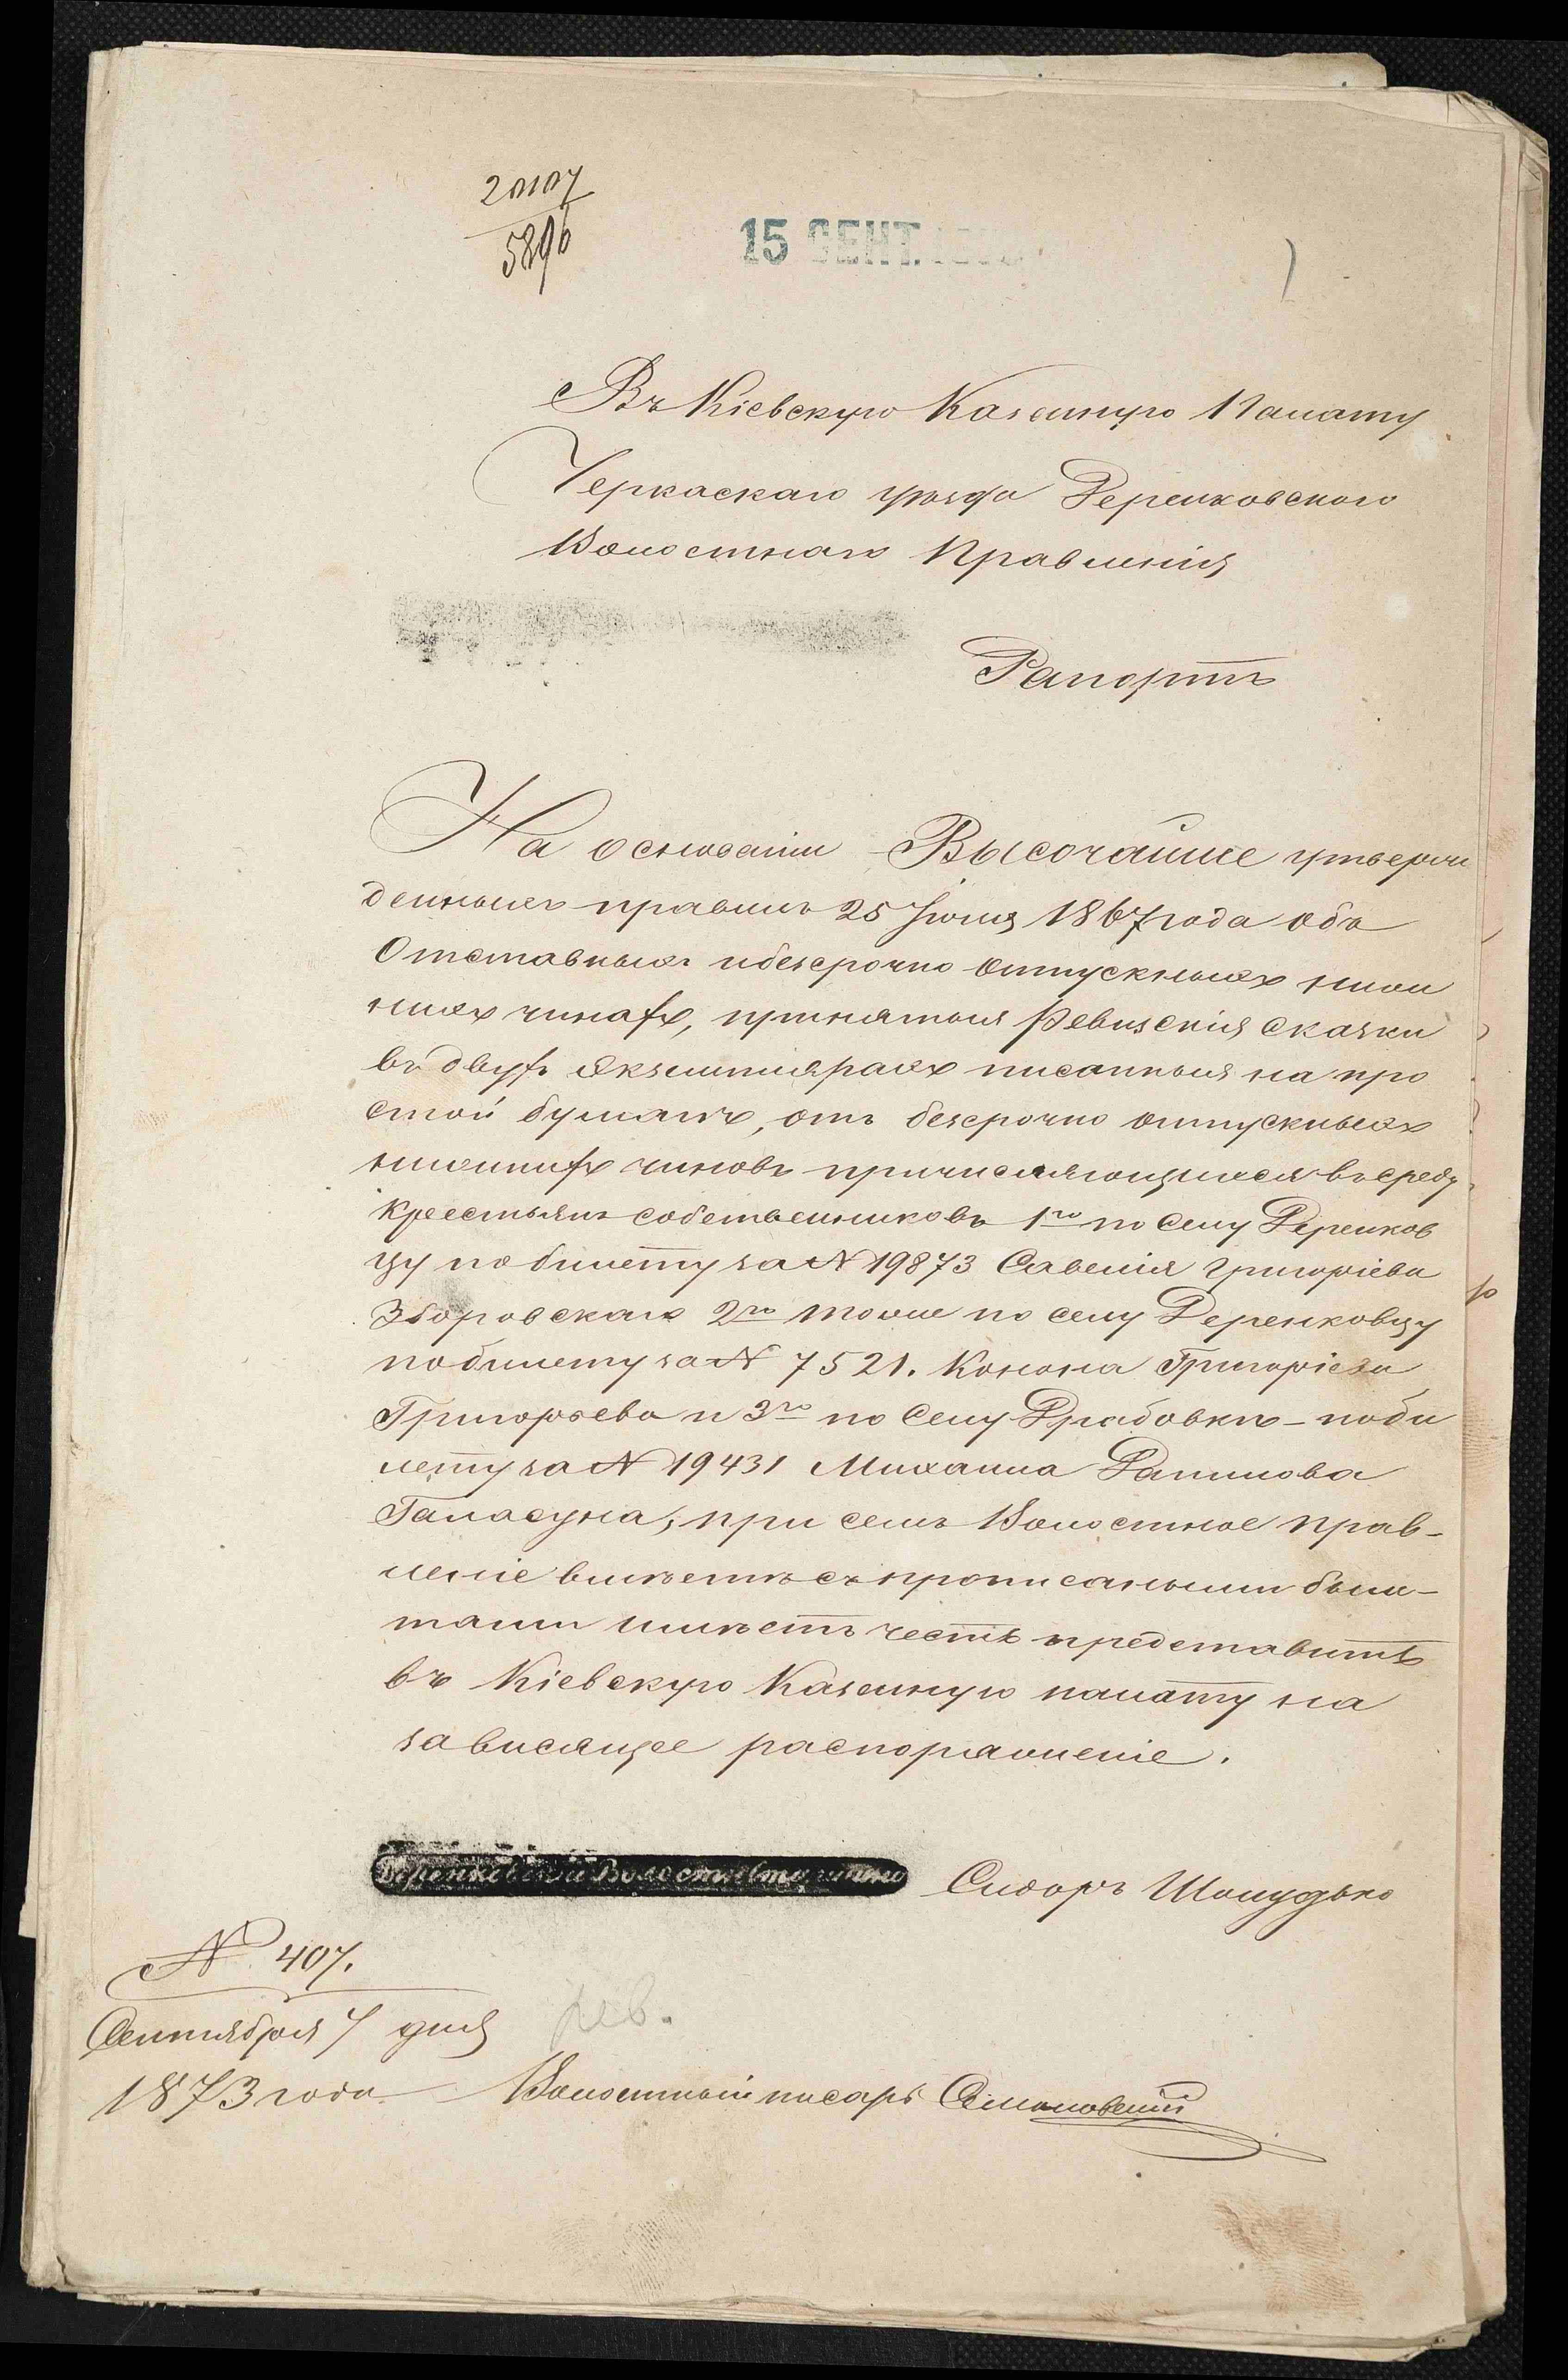 20107
5896
15 СЕНТ.
Въ Кіевскую Казенную Палату
Черкаскаго уѣзда Деренковского
Волостнаго Правленія
Рапортъ
На основаніи Высочайше утверж
денныхъ правилъ 25 Іюня 1867 года объ
Отставныхъ и безсрочно отпускныхъ ниж
нихъ чинахъ, принятыя Ревизскія сказки
въ двухъ экземплярахъ писанныя на про
стой бумагѣ, отъ безсрочно отпускныхъ
нижнихъ чиновъ причисляющихся въ среду
крестьянъ собственниковъ 1го по селу Деренков
цу по билету за № 19873 Савелія Григоріева
Зборовскаго 2го тоже по селу Деренковцу
по билету за № 7521. Конона Григоріева
Григорьева и 3го по селу Драбовкѣ - по би
лету за № 19431 Михаила Данилова
Галагуна, при семъ Волостное прав-
леніе вмѣстѣ съ прописанными биле-
тами имѣетъ честь представить
въ Кіевскую Казенную палату на
зависящее распоряженіе.
Деренковскій Волостн Старшина Сидоръ Шолудько
№ 407.
Сентября 7 дня
рев.
1873 года
Волостный писарь